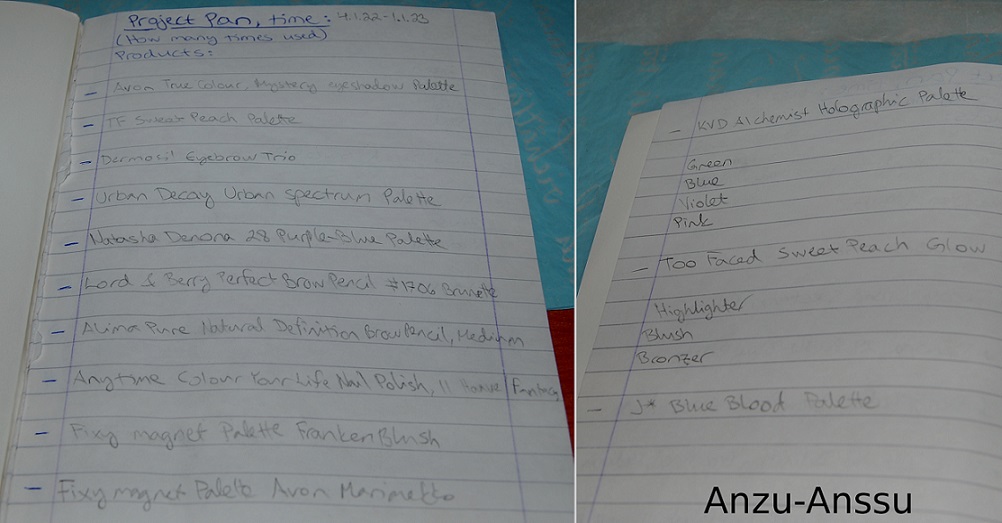 Project Pan, time: 4.1.22-1.1.23
(How many times used)
Products:
- Avon True Colour, Mystery eyeshadow Palette
- TF Sweet Peach Palette
- Dermosil Eyebrow Trio
- Urban Decay Urban Spectrum Palette
- Natasha Denona 28 Purple-Blue Palette
- Lord & Berry Perfect Brow Pencil #1706 Brunette
- Alima Pure Natural Definition Brow Pencil, Medium
- Anytime Colour Your Life Nail Polish, 11 Fantasy
- Fixy magnet Palette FrankenBlush
- Fixy magnet Palette Avon
- KVD Alchemist Holographic Palette
Green
Blue
Violet
Pink
- Too Faced Sweet Peach Glow
Highlighter
Blush
Bronzer
- J* Blue Blood Palette
Anzu-Anssu